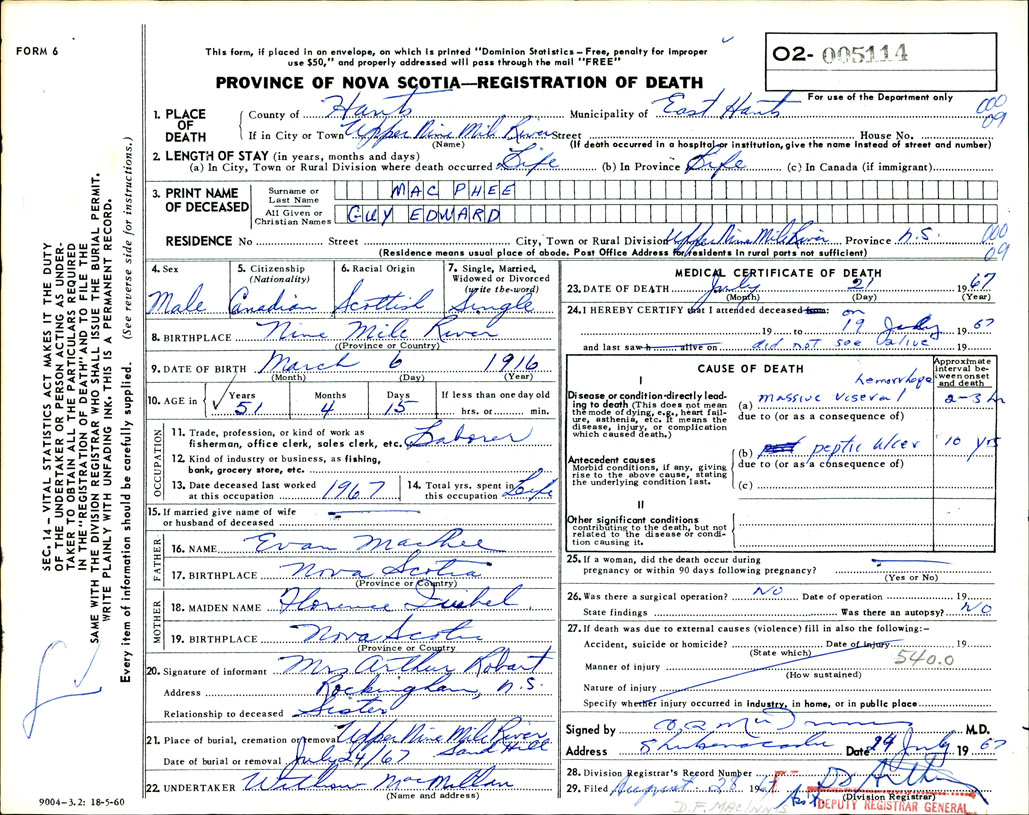 FORM 6
This form, if placed in an envelope, on which is printed "Dominion Statistics – Free, penalty for improper
use $50," and properly addressed will pass through the mail "FREE"
02- 005114
PROVINCE OF NOVA SCOTIA—REGISTRATION OF DEATH
For use of the Department only
1. PLACE OF DEATH
County of Hants Municipality of East Hants 000 09
If in City or Town Upper Nine Mile River Street House No.
(Name) (If death occurred in a hospital or institution, give the name instead of street and number)
2. LENGTH OF STAY (in years, months and days)
(a) In City, Town or Rural Division where death occurred Life (b) In Province Life (c) In Canada (if immigrant)
3. PRINT NAME OF DECEASED
Surname or Last Name MAC PHEE
All Given or Christian Names GUY EDWARD
RESIDENCE No Street City, Town or Rural Division Upper Nine Mile River Province N.S. 000 09
(Residence means usual place of abode. Post Office Address for residents in rural parts not sufficient)
4. Sex Male
5. Citizenship (Nationality) Canadian
6. Racial Origin Scottish
7. Single, Married, Widowed or Divorced (write the word) Single
8. BIRTHPLACE Nine Mile River
(Province or Country)
9. DATE OF BIRTH March 6 1916
(Month) (Day) (Year)
10. AGE in Years 51 Months 4 Days 15 If less than one day old hrs. or min.
OCCUPATION
11. Trade, profession, or kind of work as
fisherman, office clerk, sales clerk, etc. Laborer
12. Kind of industry or business, as fishing,
bank, grocery store, etc.
13. Date deceased last worked at this occupation 1967
14. Total yrs. spent in this occupation Life
15. If married give name of wife
or husband of deceased
FATHER
16. NAME Evan MacPhee
17. BIRTHPLACE Nova Scotia
(Province or Country)
MOTHER
18. MAIDEN NAME Florence
19. BIRTHPLACE Nova Scotia
(Province or Country
20. Signature of informant Mrs Arthur Robart
Address Rockingham, N.S.
Relationship to deceased Sister
21. Place of burial, cremation or removal Upper Nine Mile River
Sand Hill
Date of burial or removal July 24/67
22. UNDERTAKER MacMillan
(Name and address)
9004–3.2: 18-5-60
SEC. 14 – VITAL STATISTICS ACT MAKES IT THE DUTY
OF THE UNDERTAKER OR PERSON ACTING AS UNDER-
TAKER TO OBTAIN ALL THE PARTICULARS REQUIRED
IN THE "REGISTRATION OF DEATH" AND TO FILE THE
SAME WITH THE DIVISION REGISTRAR WHO SHALL ISSUE THE BURIAL PERMIT.
WRITE PLAINLY WITH UNFADING INK. THIS IS A PERMANENT RECORD.
Every item of information should be carefully supplied. (See reverse side for instructions.)
MEDICAL CERTIFICATE OF DEATH
23. DATE OF DEATH July 21 1967
(Month) (Day) (Year)
24. I HEREBY CERTIFY that I attended deceased from: on
19 to 19 July 1967
and last saw h alive on did not see alive 19
CAUSE OF DEATH
Approximate interval between onset and death
I
Disease or condition directly leading to death (This does not mean
the mode of dying, e.g., heart failure, asthenia, etc. It means the
disease, injury, or complication which caused death.)
(a) massive viseral hemorrhage 2-3 hr
due to (or as a consequence of)
Antecedent causes
Morbid conditions, if any, giving
rise to the above cause, stating
the underlying condition last.
(b) peptic ulcer 10 yrs
due to (or as a consequence of)
(c)
II
Other significant conditions
contributing to the death, but not
related to the disease or condition causing it.
25. If a woman, did the death occur during
pregnancy or within 90 days following pregnancy?
(Yes or No)
26. Was there a surgical operation? NO Date of operation 19
State findings Was there an autopsy? NO
27. If death was due to external causes (violence) fill in also the following:–
Accident, suicide or homicide? Date of injury 19
(State which) 540.0
Manner of injury
(How sustained)
Nature of injury
Specify whether injury occurred in industry, in home, or in public place
Signed by M.D.
Address Shubenacadie Date 24 July 1967
28. Division Registrar's Record Number
29. Filed August 28 1967
(Division Registrar)
D.F. MACINNIS Ass't DEPUTY REGISTRAR GENERAL